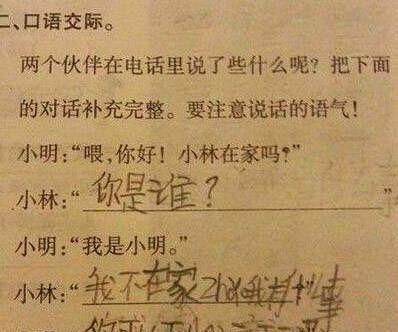 二、口语交际。
两个伙伴在电话里说了些什么呢？把下面
的对话补充完整。要注意说话的语气！
小明：“喂，你好！小林在家吗？”
小林：“你是谁？”
小明：“我是小明。”
小林：“我不在家 找我有什 事